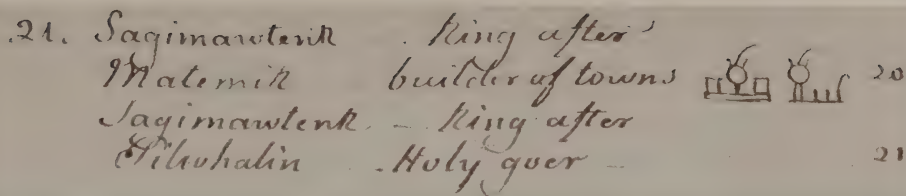 21. Sagimawtenk . King after
Matemik builder of towns 20
Sagimawtenk. - King after
Pilwhalin . Holy goer - 21